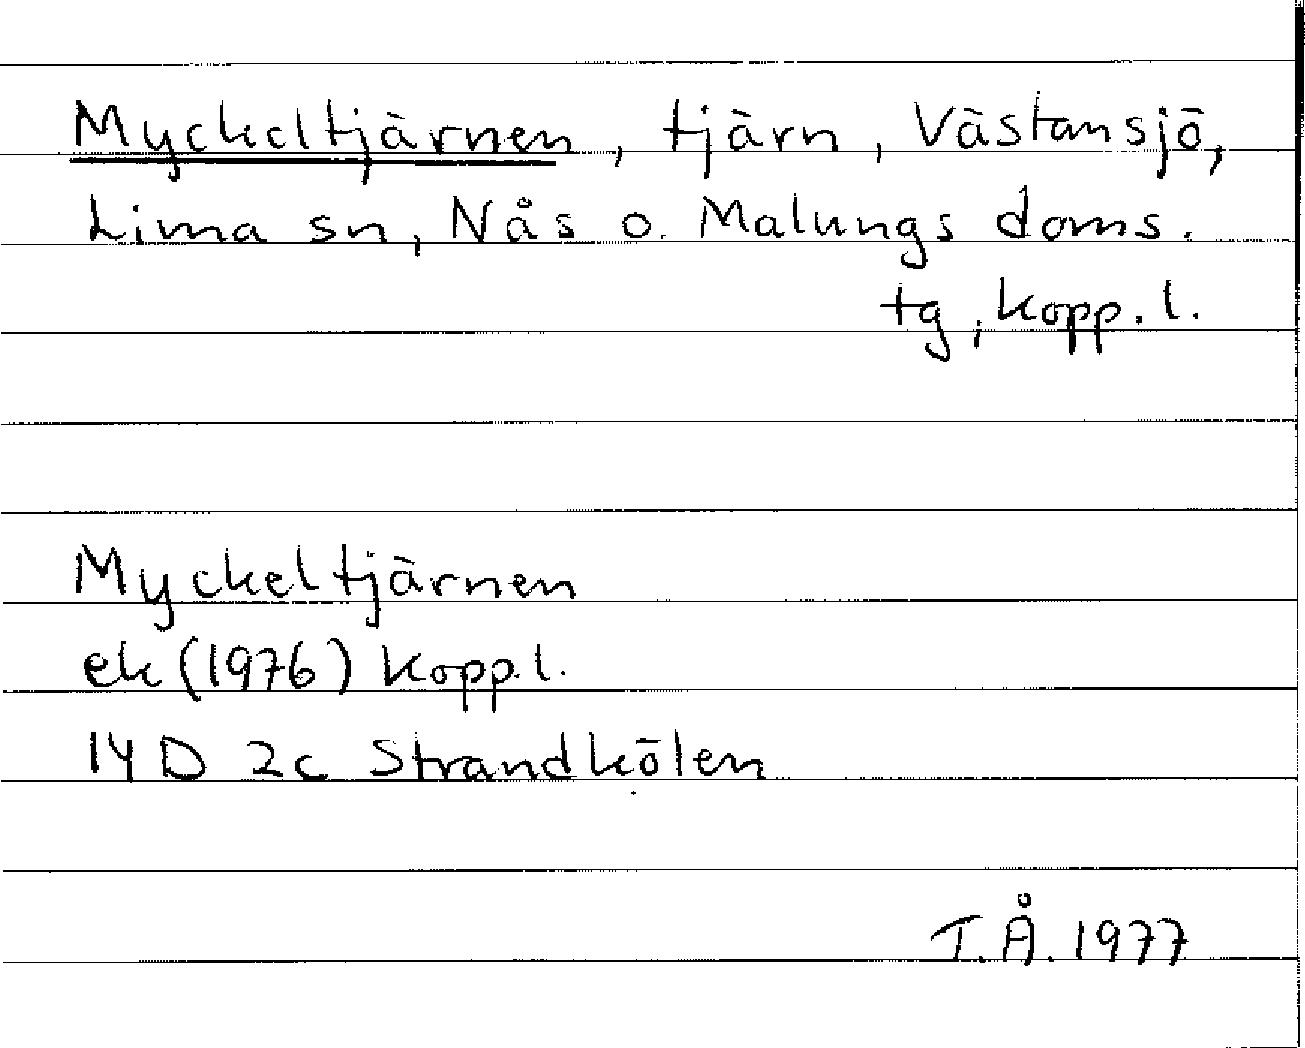 Myckeltjärnen, tjärn, Västansjö,
Lima sn, Nås o. Malungs doms.
tg, Kopp. l.
Myckeltjärnen
ek (1976) Kopp. l.
14 D 2c Strandkölen
T.Å. 1977